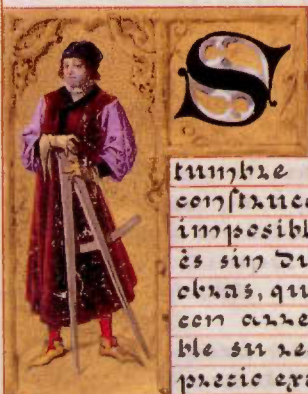 S
tumbre
construcc
imposibl
ès sin du
obras, qu
con arre
ble su re
precio ex